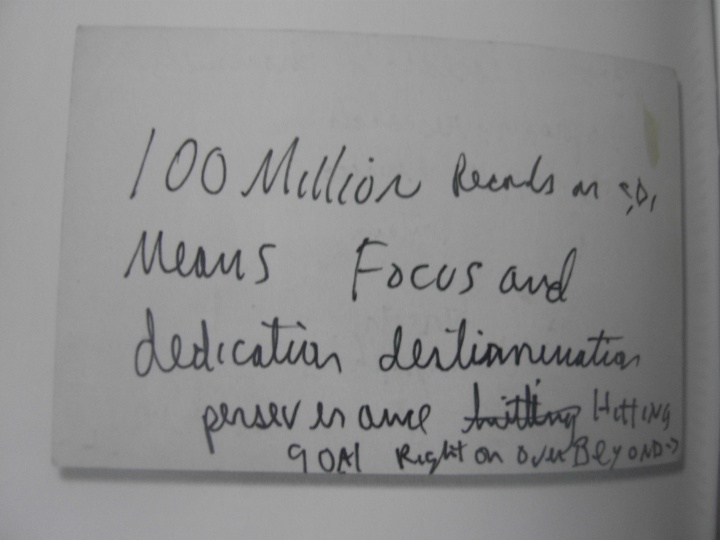 100 Million Records on
Means Focus and
dedication
perserverance hitting HittING
goal Right on over BEYOND->